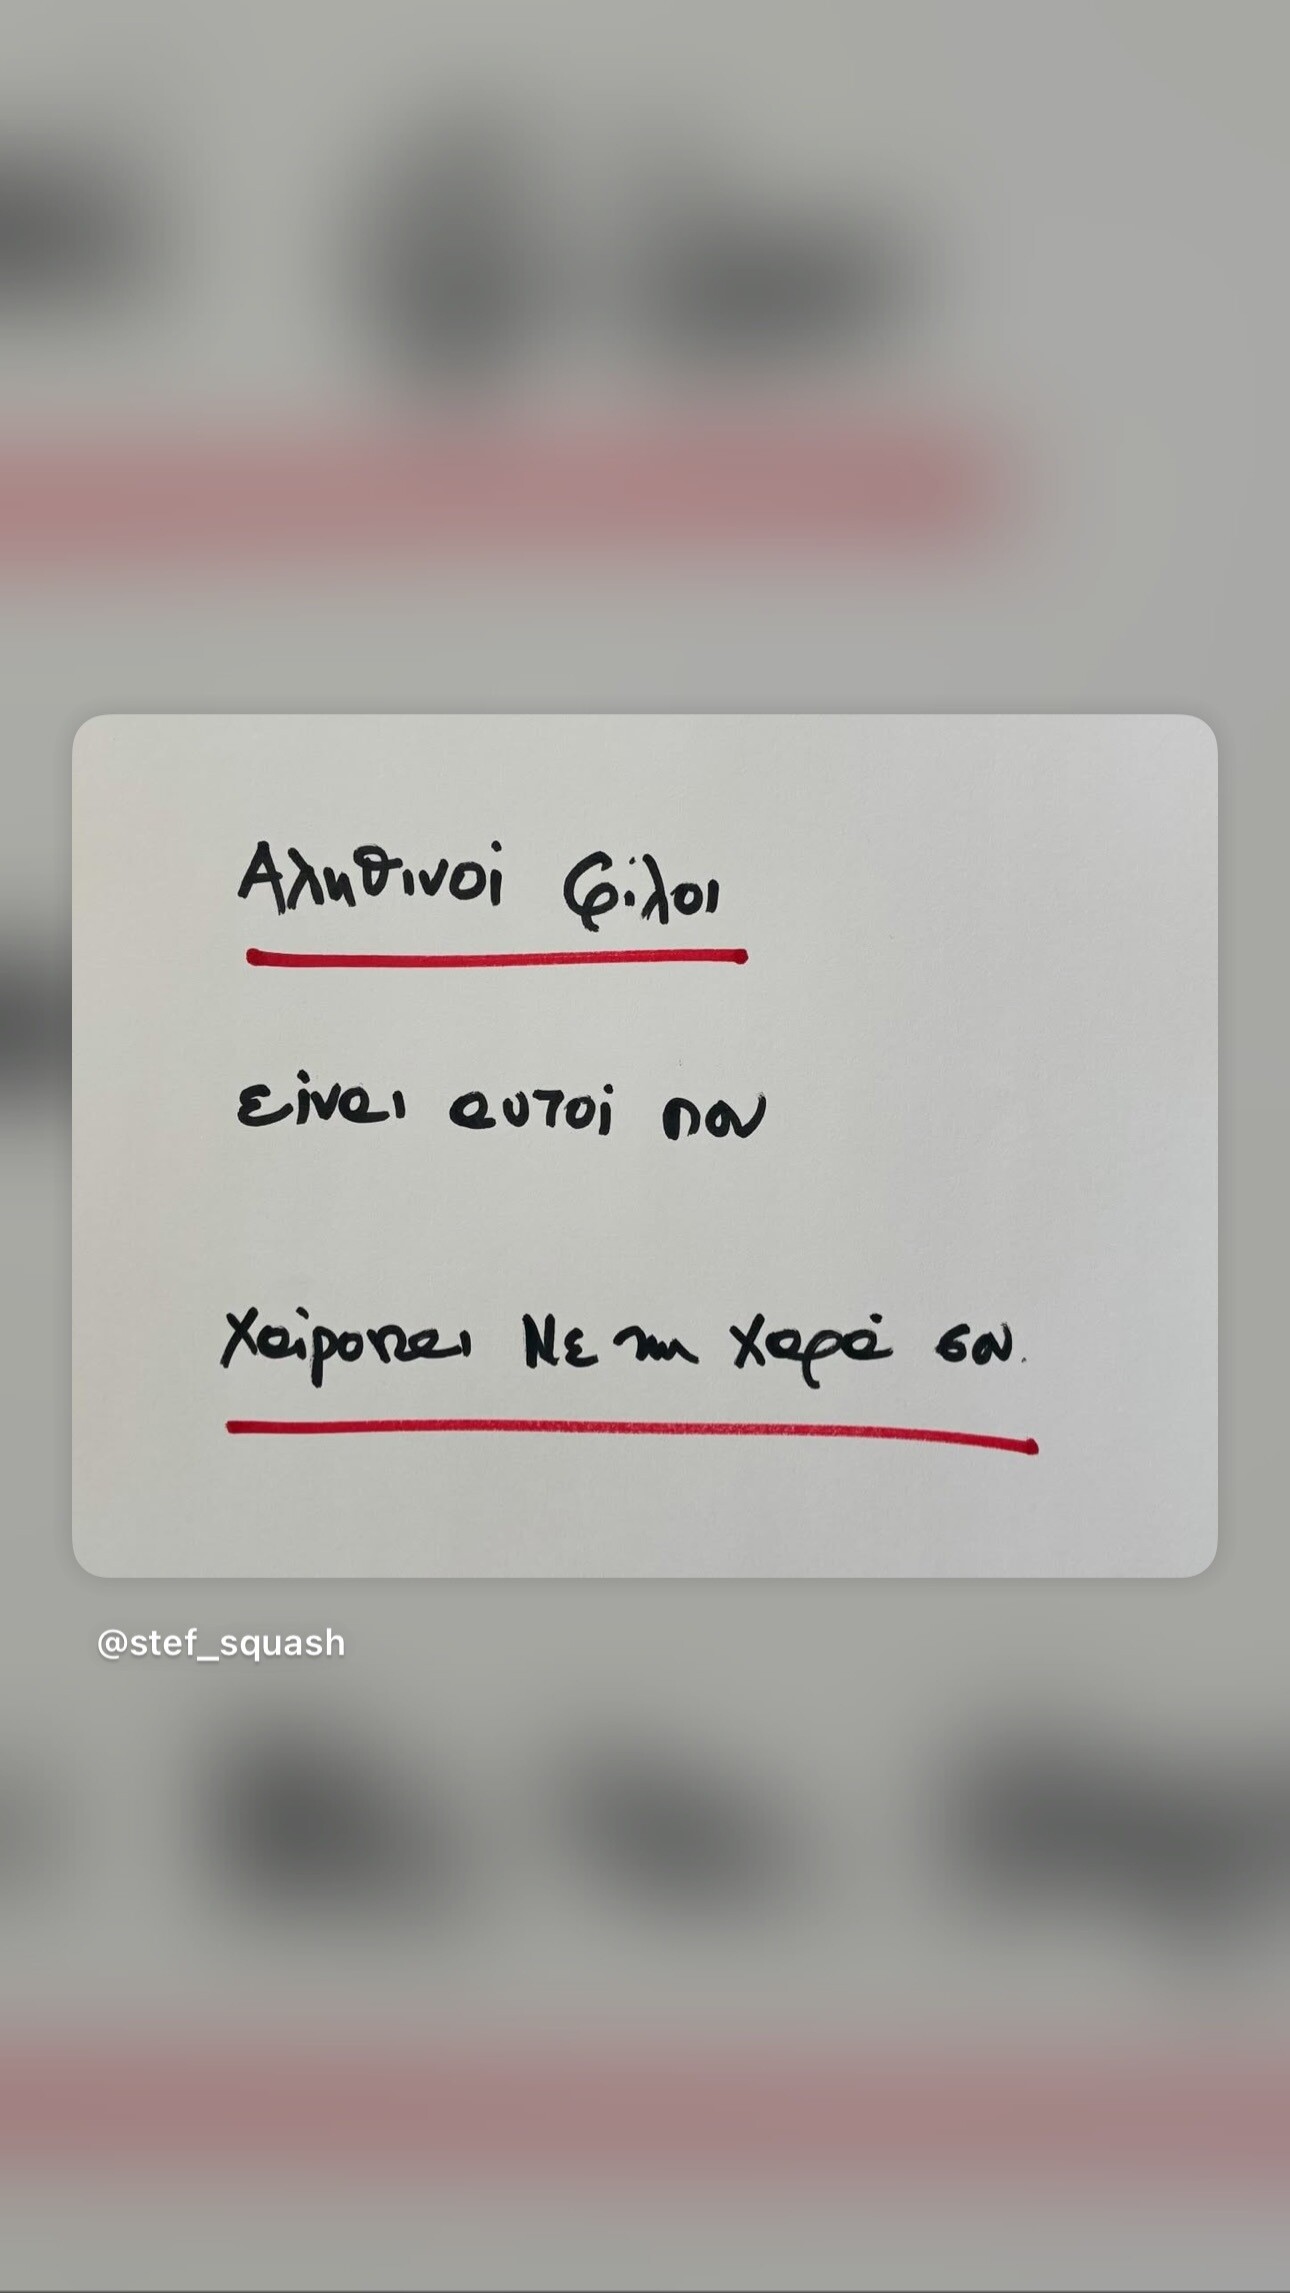 Αληθινοί φίλοι
είναι αυτοί που
χαίρονται με τη χαρά σου.
@stef_squash